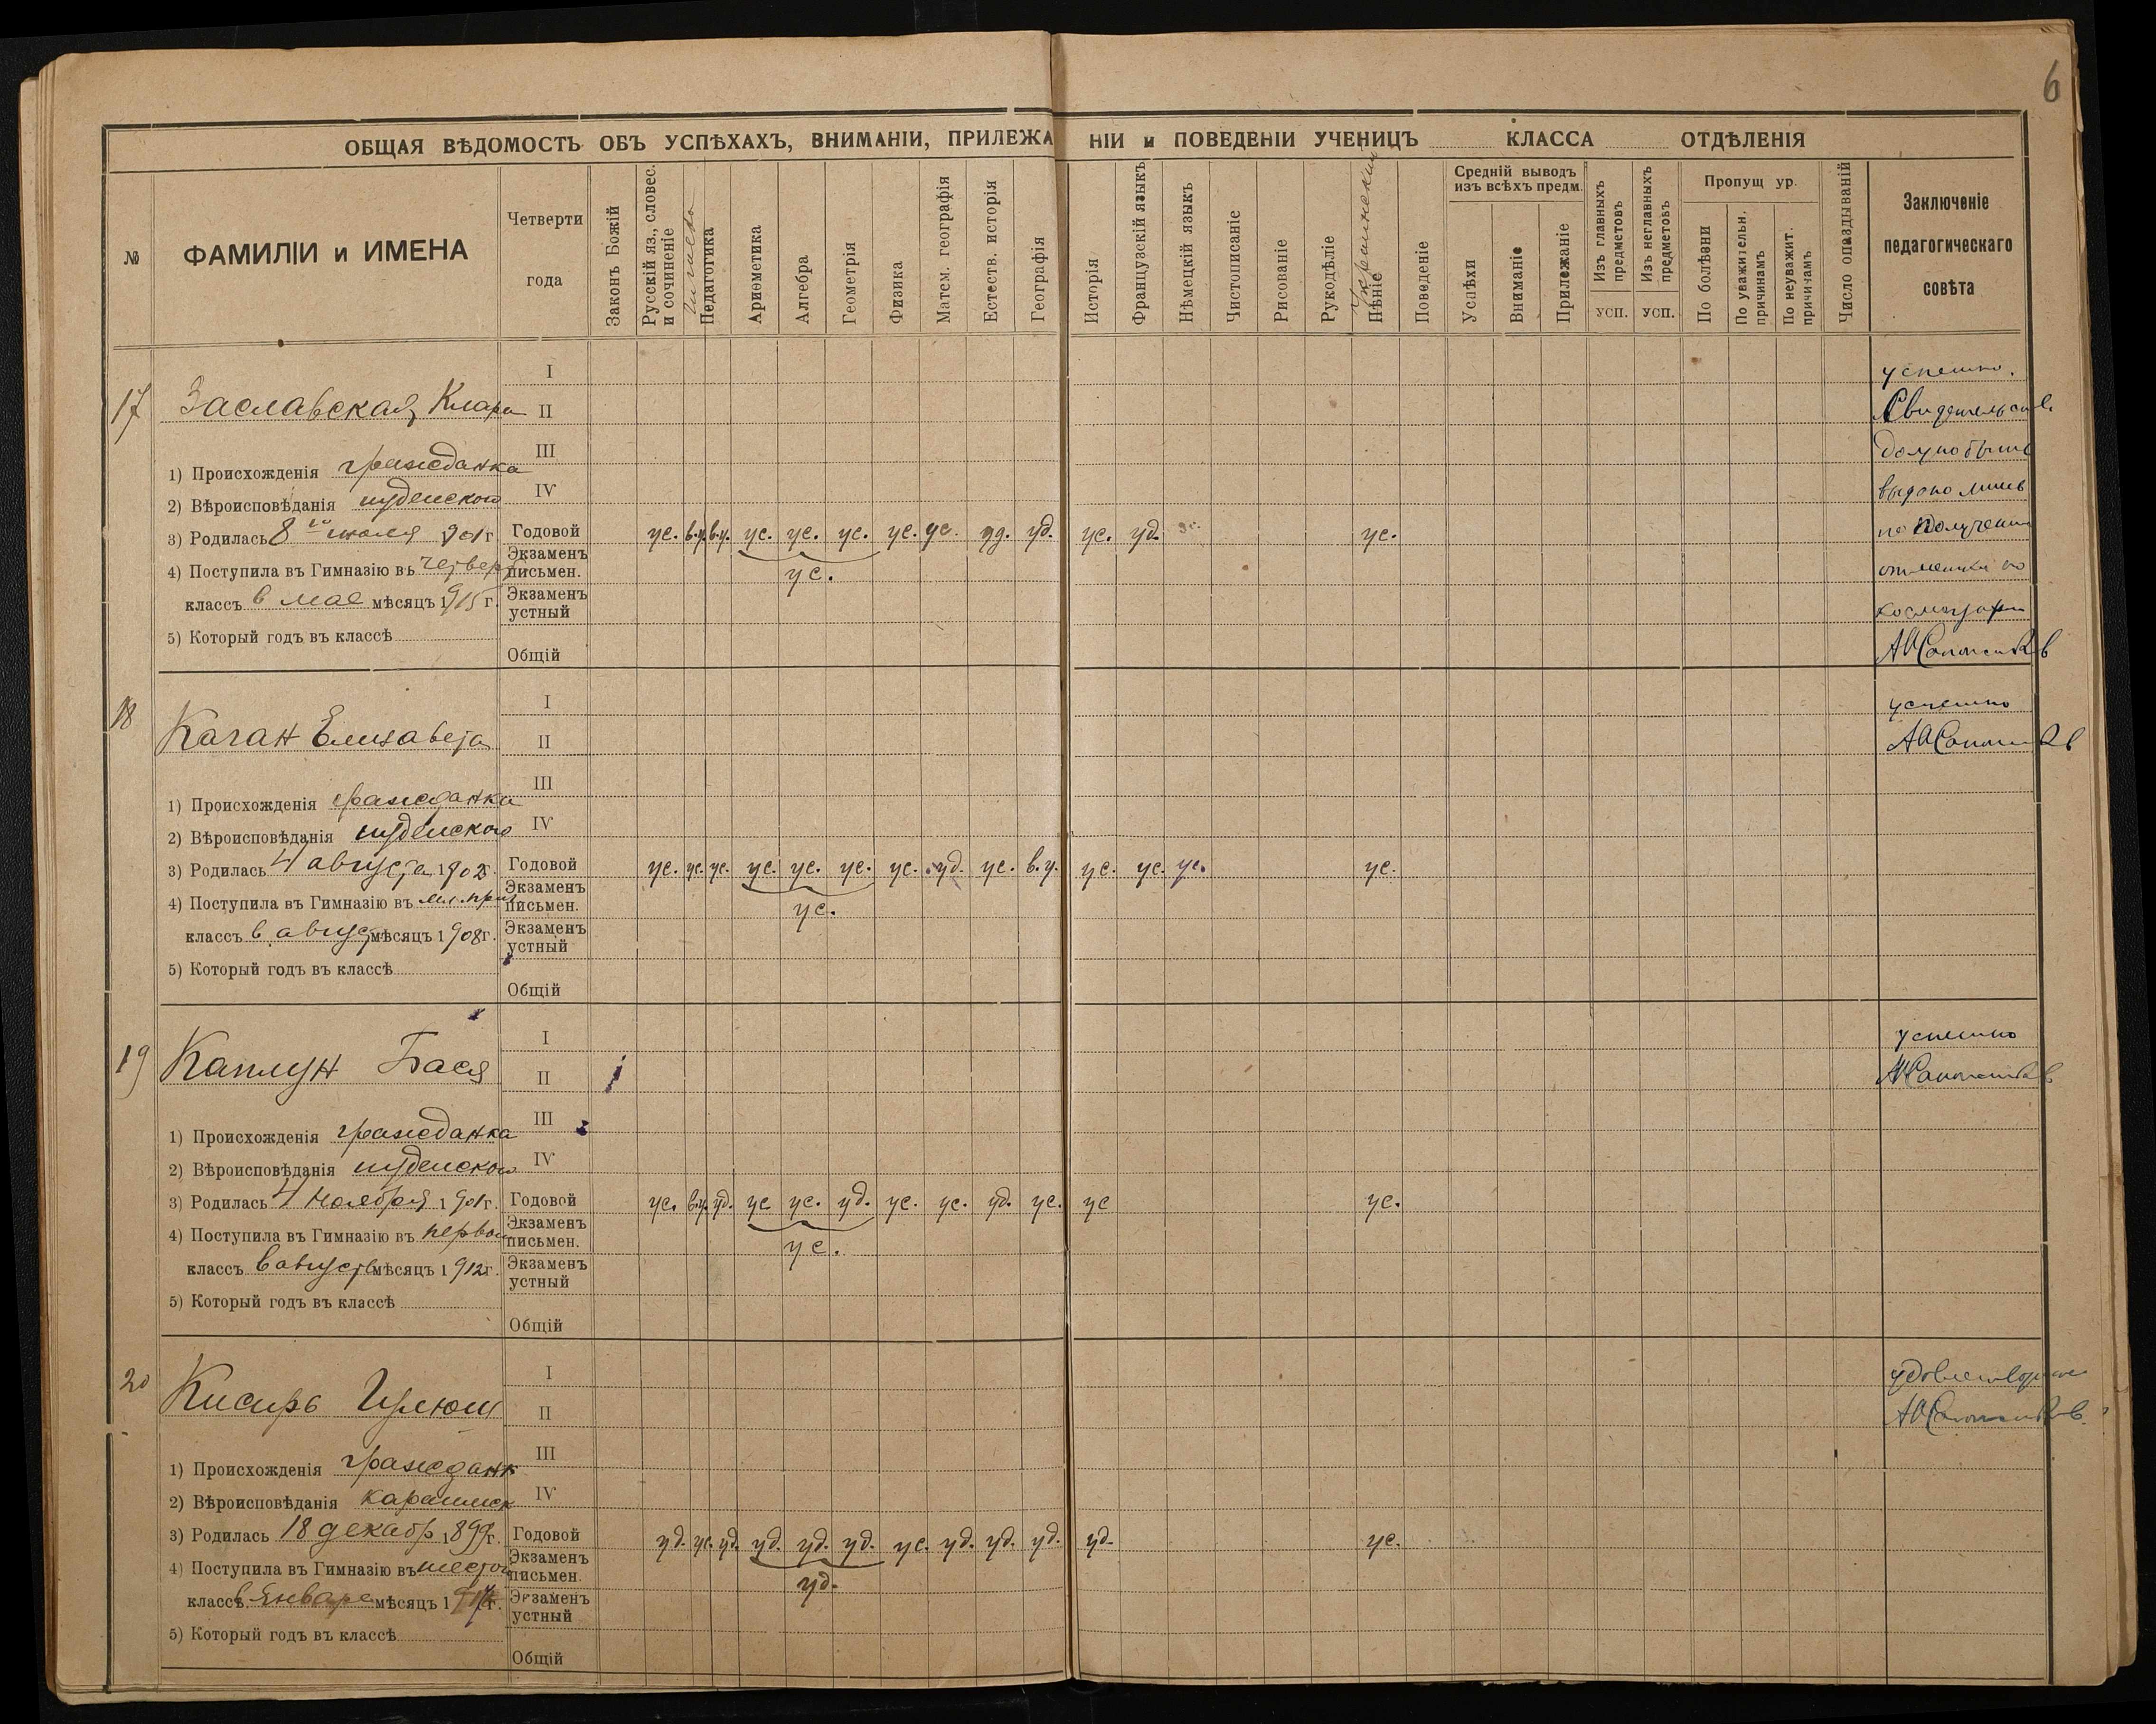 6
ОБЩАЯ ВѢДОМОСТЬ ОБЪ УСПѢХАХЪ, ВНИМАНІИ, ПРИЛЕЖА НІИ и ПОВЕДЕНІИ УЧЕНИЦЪ КЛАССА ОТДѢЛЕНІЯ
№
ФАМИЛІИ и ИМЕНА
Четверти
года
Законъ Божій
Русскій яз., словес.
и сочиненіе
Педагогика
Ариѳметика
Алгебра
Геометрія
Физика
Матем. географія
Естеств. исторія
Географія
Исторія
Французскій языкъ
Нѣмецкій языкъ
Чистописаніе
Рисованіе
Рукодѣліе
Украинский
Пѣніе
Поведеніе
Средній выводъ
изъ всѣхъ предм.
Успѣхи
Вниманіе
Прилежаніе
Изъ главныхъ
предметовъ
усп.
Изъ неглавныхъ
предметовъ
усп.
Пропущ ур.
По болѣзни
По уважительн.
причинамъ
По неуважит.
причинамъ
Число опаздываній
Заключеніе
педагогическаго
совѣта
17
Заславская Клара
1) Происхожденія гражданка
2) Вѣроисповѣданія иудейского
3) Родилась 8 июля 1901 г.
4) Поступила въ Гимназію въ
классъ в мае мѣсяцъ 1915 г.
5) Который годъ въ классѣ
I
II
III
IV
Годовой ус. в.у. в.у. ус. ус. ус. ус. ус. уд. уд. ус. уд. ус.
Экзаменъ
письмен. ус.
Экзаменъ
устный
Общій
успешно.
должно быть
выдано лишь
по получении
отметки по
18
Каган Елизавета
1) Происхожденія гражданка
2) Вѣроисповѣданія иудейского
3) Родилась 4 августа 190 г.
4) Поступила въ Гимназію въ мл. приг
классъ в август мѣсяцъ 1908 г.
5) Который годъ въ классѣ
I
II
III
IV
Годовой ус. ус. ус. ус. ус. ус. ус. уд. ус. в.у. ус. ус. ус. ус.
Экзаменъ
письмен. ус.
Экзаменъ
устный
Общій
успешно
19
Каплун Бася
1) Происхожденія гражданка
2) Вѣроисповѣданія иудейского
3) Родилась 4 ноября 1901 г.
4) Поступила въ Гимназію въ первый
классъ в августе мѣсяцъ 1912 г.
5) Который годъ въ классѣ
I
II
III
IV
Годовой ус. в.у. уд. ус ус. уд. ус. ус. уд. ус. ус ус.
Экзаменъ
письмен. ус.
Экзаменъ
устный
Общій
успешно
20
Кисирь
1) Происхожденія гражданк
2) Вѣроисповѣданія караимск
3) Родилась 18 декабр 1899 г.
4) Поступила въ Гимназію въ шестой
классъ в январе мѣсяцъ 1917 г.
5) Который годъ въ классѣ
I
II
III
IV
Годовой уд. ус. уд. уд. уд. уд. ус. уд. уд. уд. уд. ус.
Экзаменъ
письмен. уд.
Экзаменъ
устный
Общій